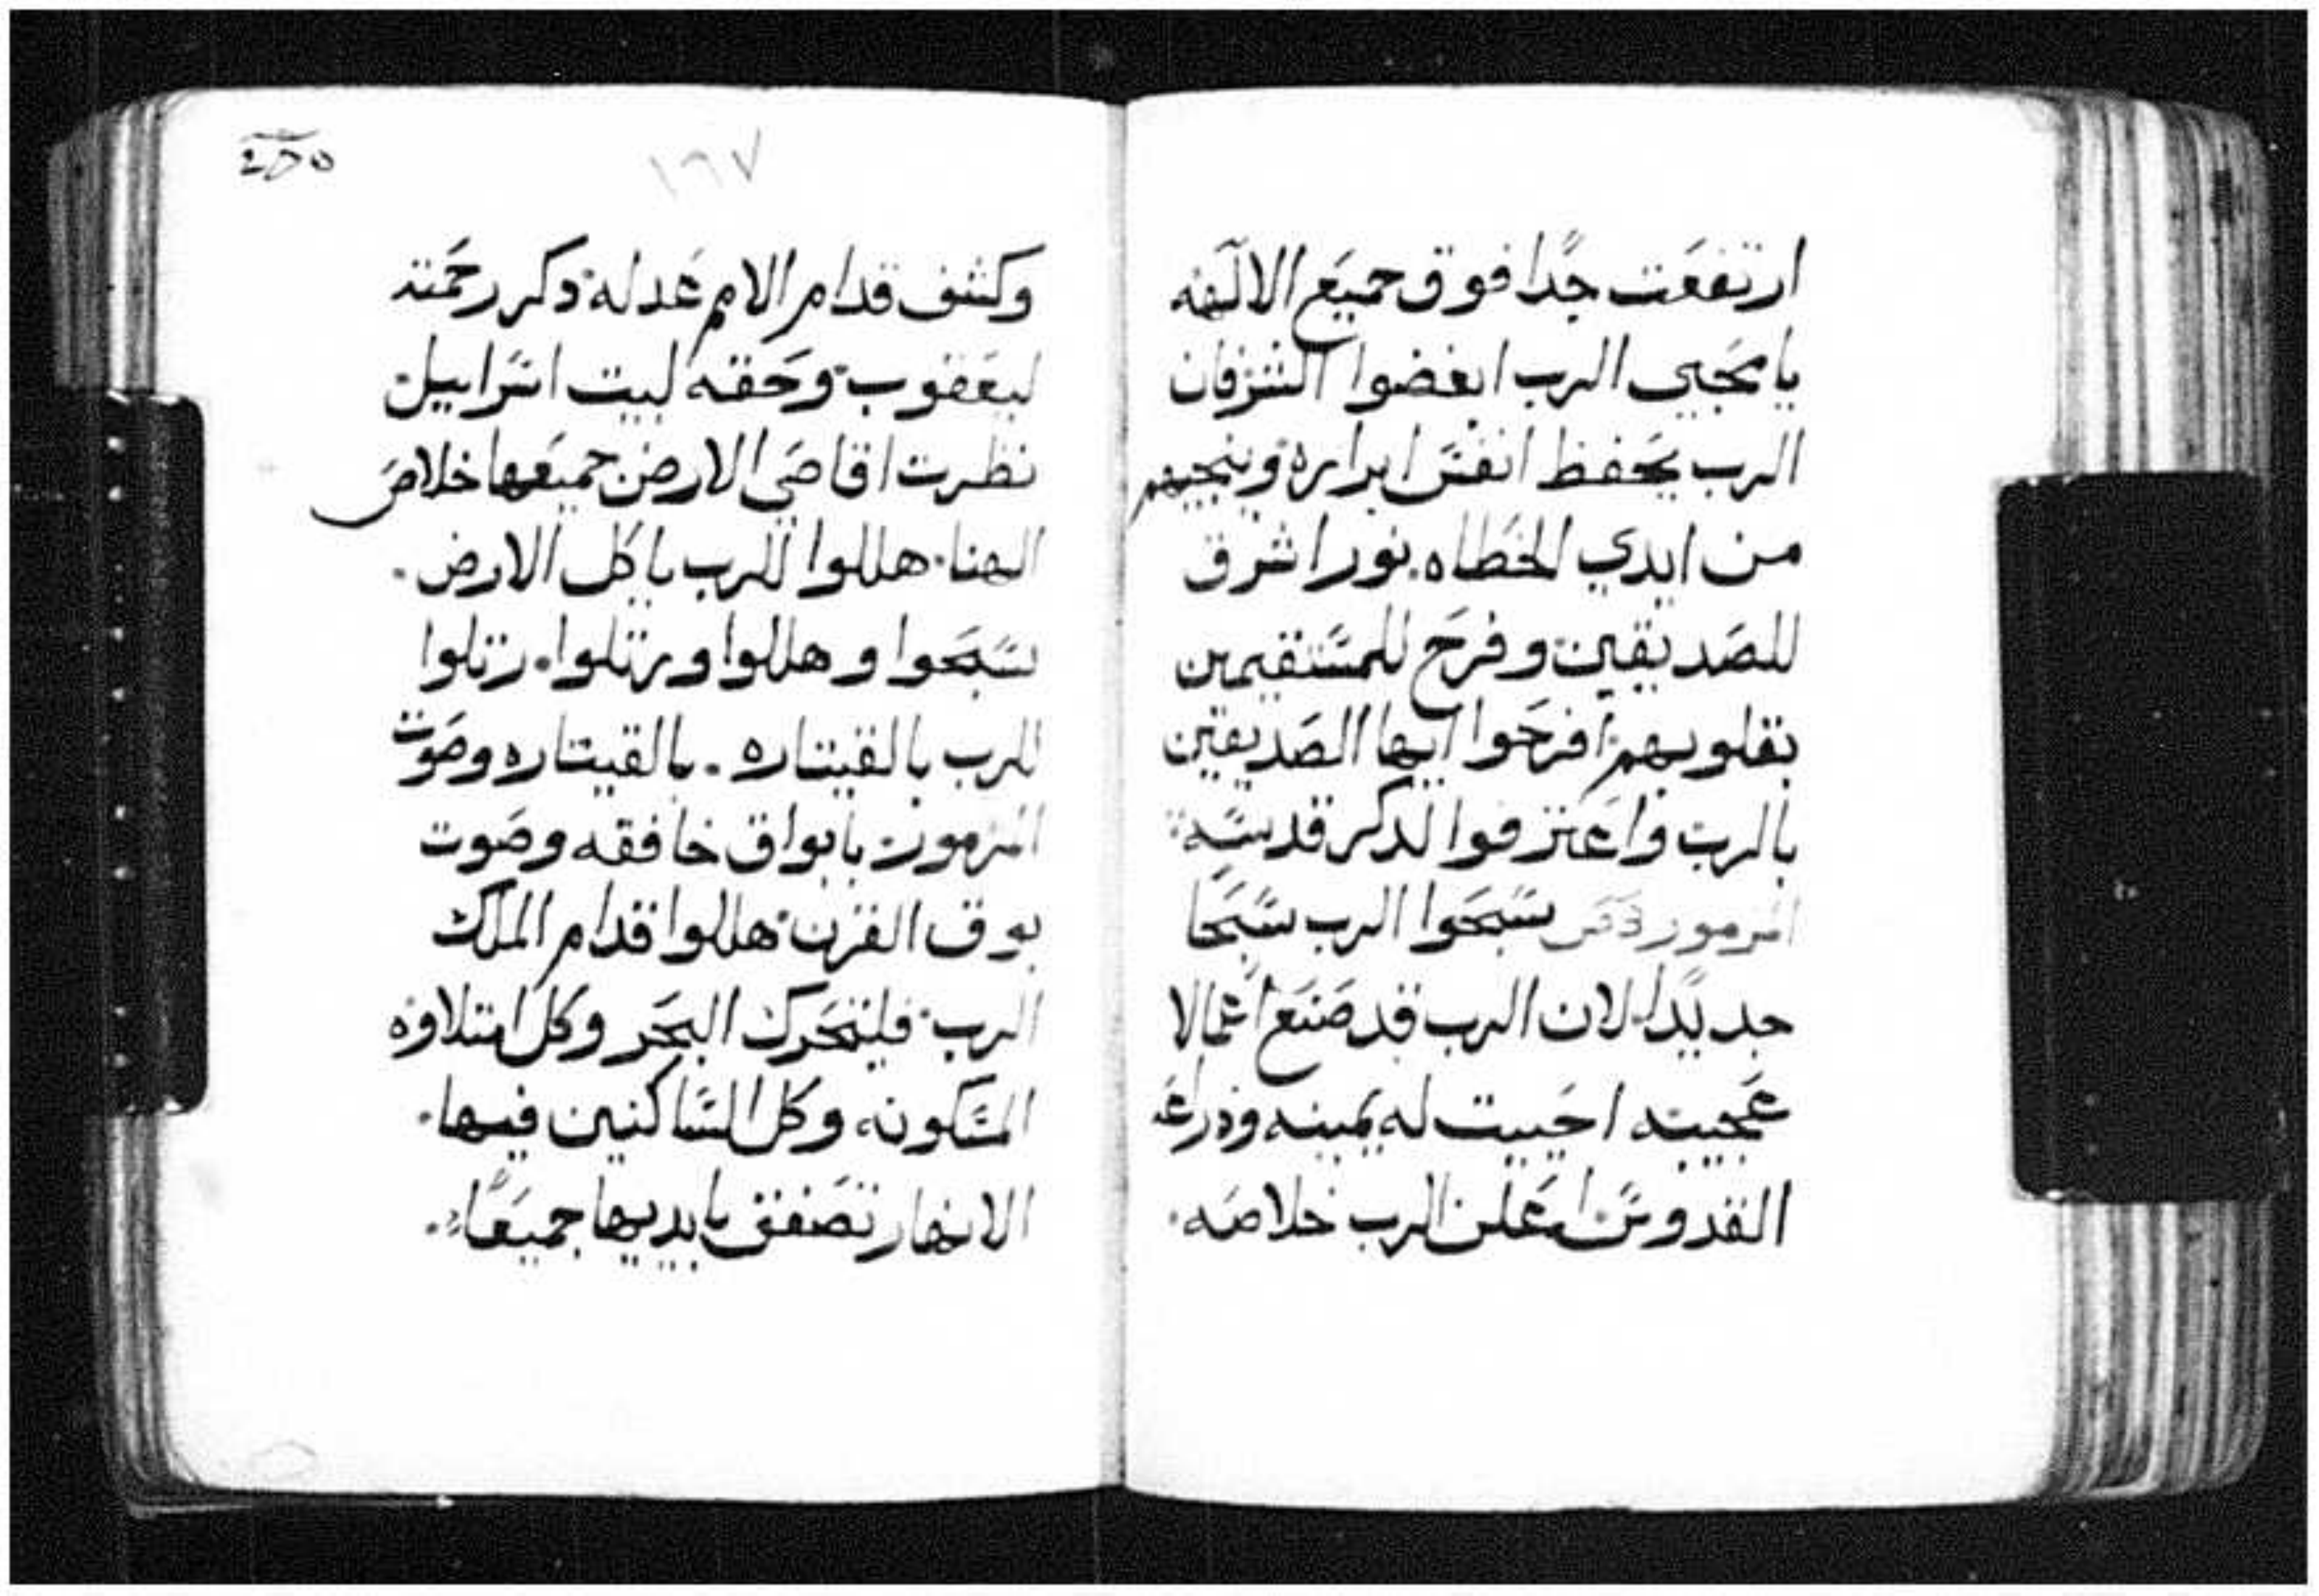 ارتفعت جدا فوق جميع الالهه
يا محبي الرب ابغضوا الشرفان
الرب يحفظ انفس ابراره وينجيهم
من ايدي الخطاه. نور اشرق
للصديقين وفرح للمستقيمين
بقلوبهم افرحوا ايها الصديقين
بالرب واعترفوا لدكر قدسه
المزمور سبحوا الرب سبحا
جديدا لان الرب قد صنع اعمالا
عجيبه احييت له يمينه وذراعه
القدوس اعلن الرب خلاصه.
١٦٧
وكشف قدام الامم عدله دكر رحمته
ليعقوب وحقه لبيت اسراييل
نظرت اقاصي الارض جميعها خلاص
الهنا. هللوا للرب يا كل الارض.
سبحوا وهللوا ورتلوا. رتلوا
للرب بالقيتاره. بالقيتاره وصوت
المزمور بابواق خافقه وصوت
بوق القرن هللوا قدام الملك
الرب فليتحرك البحر وكل امتلاوه
المسكونه وكل الساكنين فيها.
الانهار تصفق بايديها جميعا.